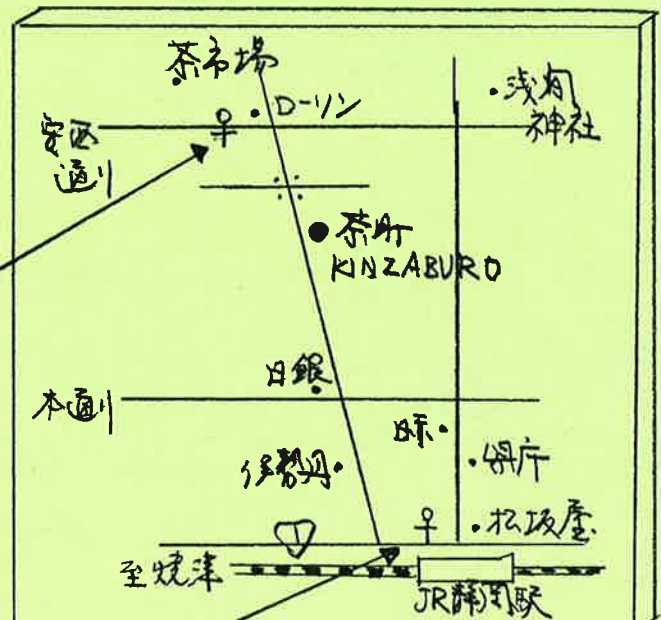 茶市場
ローソン
浅間
神社
安西
通り
茶町
KINZABURO
日銀
本通り
日赤
伊勢丹
県庁
松坂屋
至焼津
JR静岡駅